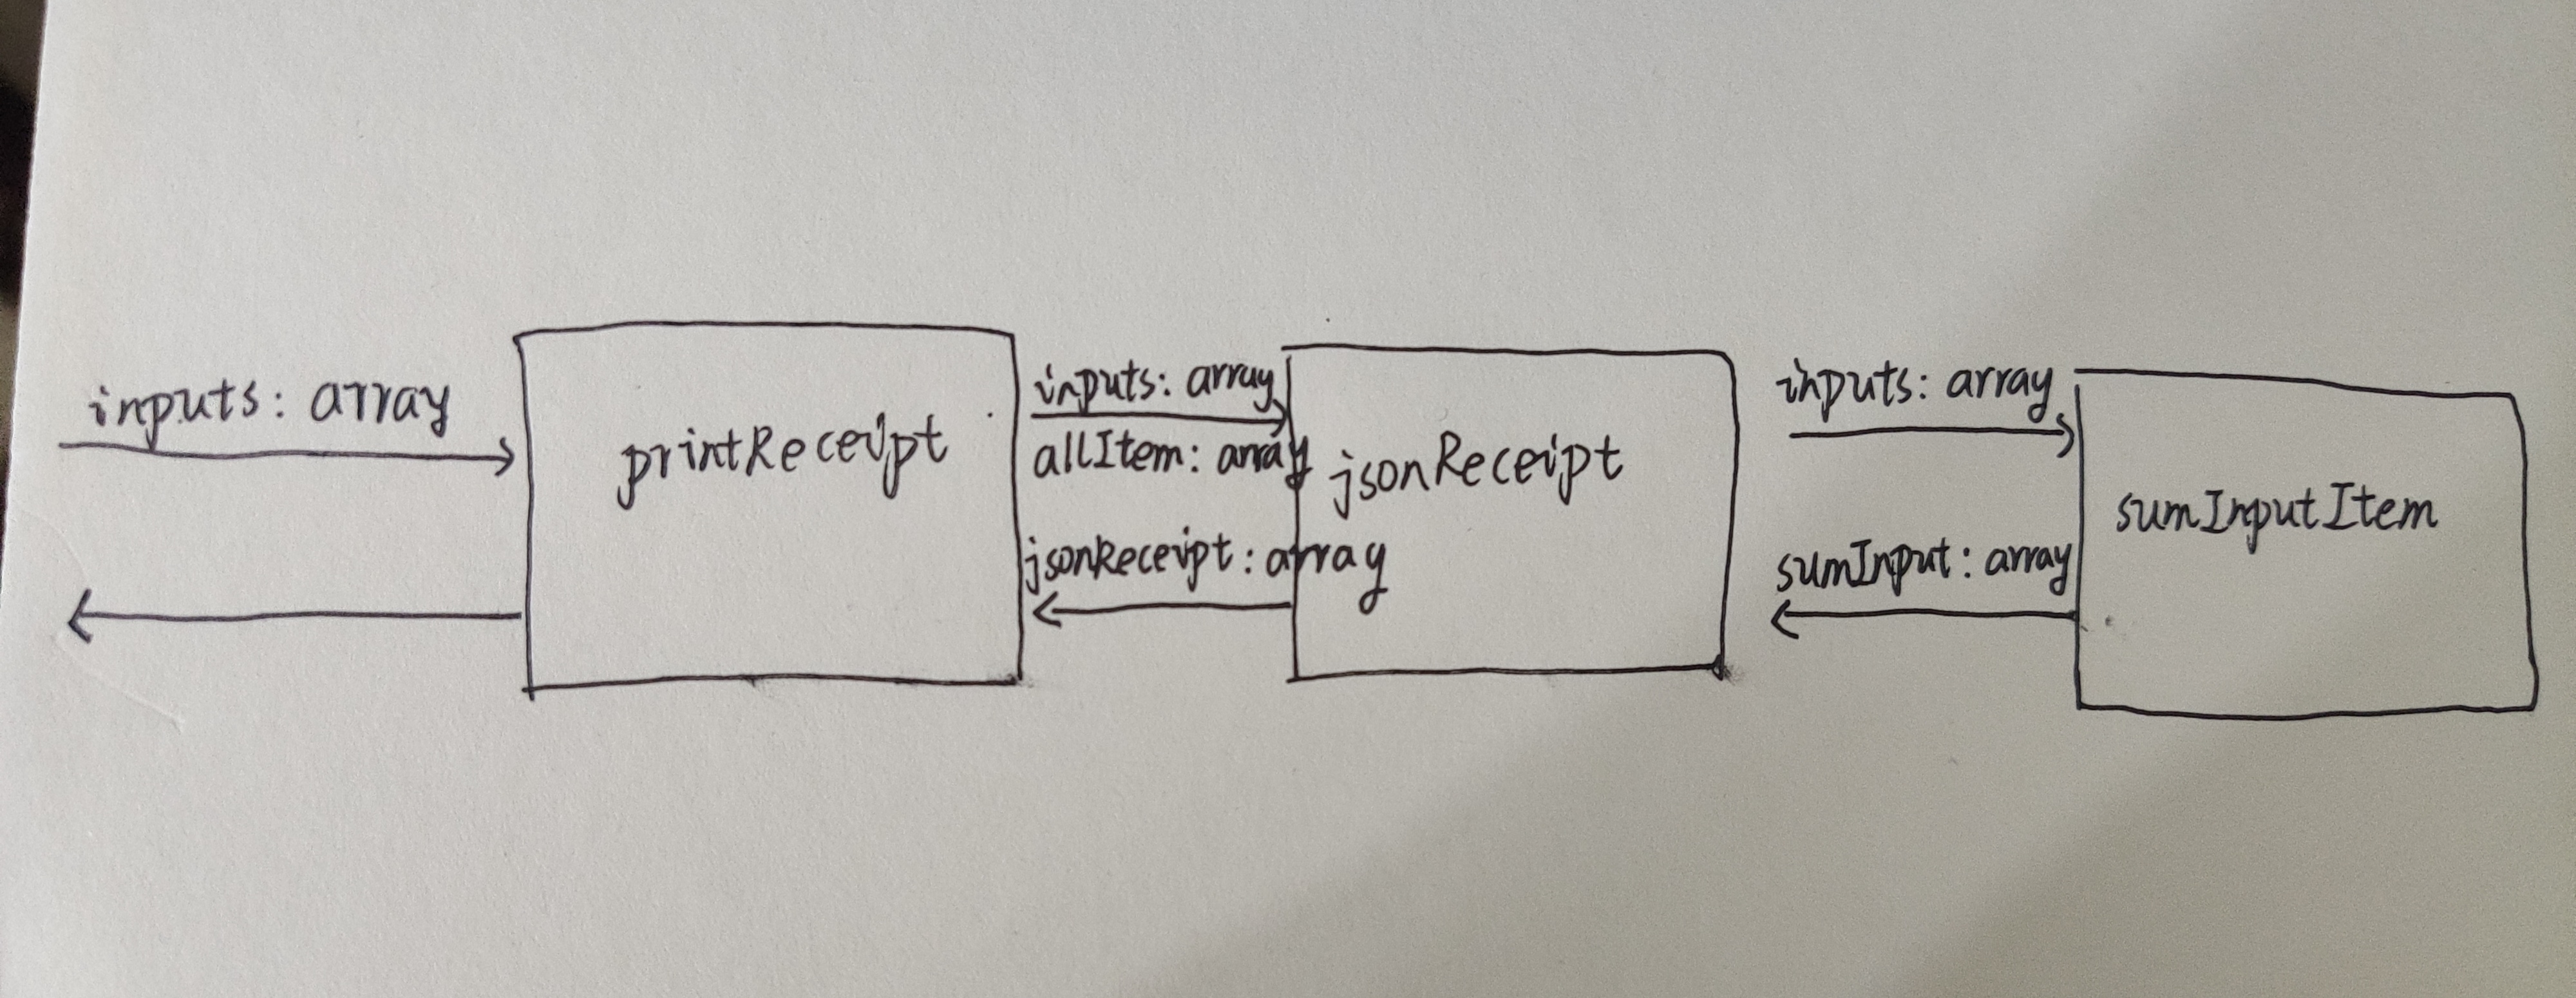 inputs: array
printReceipt
inputs: array
allItem: array
jsonReceipt: array
jsonReceipt
inputs: array
sumInput: array
sumInputItem